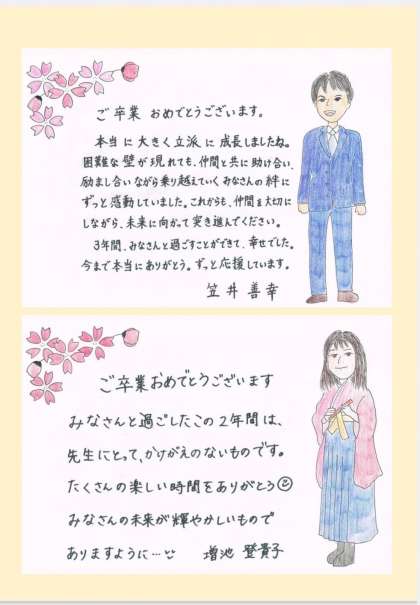 ご卒業 おめでとうございます。
本当に大きく立派に成長しましたね。
困難な壁が現れても、仲間と共に助け合い、
励まし合いながら乗り越えていくみなさんの絆に
ずっと感動していました。これからも、仲間を大切に
しながら、未来に向かって突き進んでください。
3年間、みなさんと過ごすことができて、幸せでした。
今まで本当にありがとう。ずっと応援しています。
笠井 善幸
ご卒業おめでとうございます
みなさんと過ごしたこの2年間は、
先生にとって、かけがえのないものです。
たくさんの楽しい時間をありがとう
みなさんの未来が輝やかしいもので
ありますように…
増池 登貴子